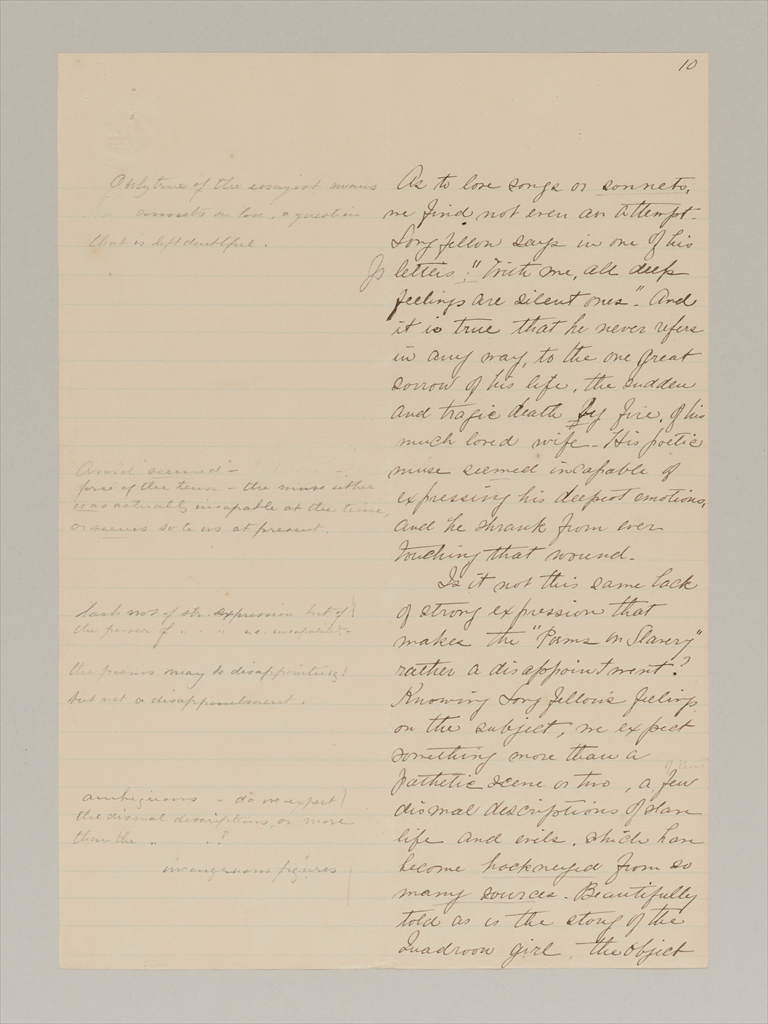 10
As to love songs or sonnets,
we find not even an attempt.
Longfellow says in one of his
letters: "With me, all deep
feelings are silent ones". And
it is true that he never refers
in any way, to the one great
sorrow of his life, the sudden
and tragic death by fire, of his
much loved wife. His poetic
muse seemed incapable of
expressing his deepest emotions,
and he shrank from ever
touching that wound.
Is it not this same lack
of strong expression that
makes the "Poems on Slavery"
rather a disappointment?
Knowing Longfellow's feelings
on the subject, we expect
something more than a
pathetic scene or two, a few
dismal descriptions of slave
life and evils, which have
become hackneyed from so
many sources. Beautifully
told as is the story of the
Quadroon girl, the object
Only true if the essayist means
sonnets on love, a question
that is left doubtful.
Avoid "seemed" -
the tense - the muse either
was actually incapable at the time,
or seems so to us at present.
lack not of str. expression but of
the power of " "
the poems may be disappointing
but not a disappointment.
ambiguous - do we expect
the dismal descriptions, or more
than the " "?
incongruous figures